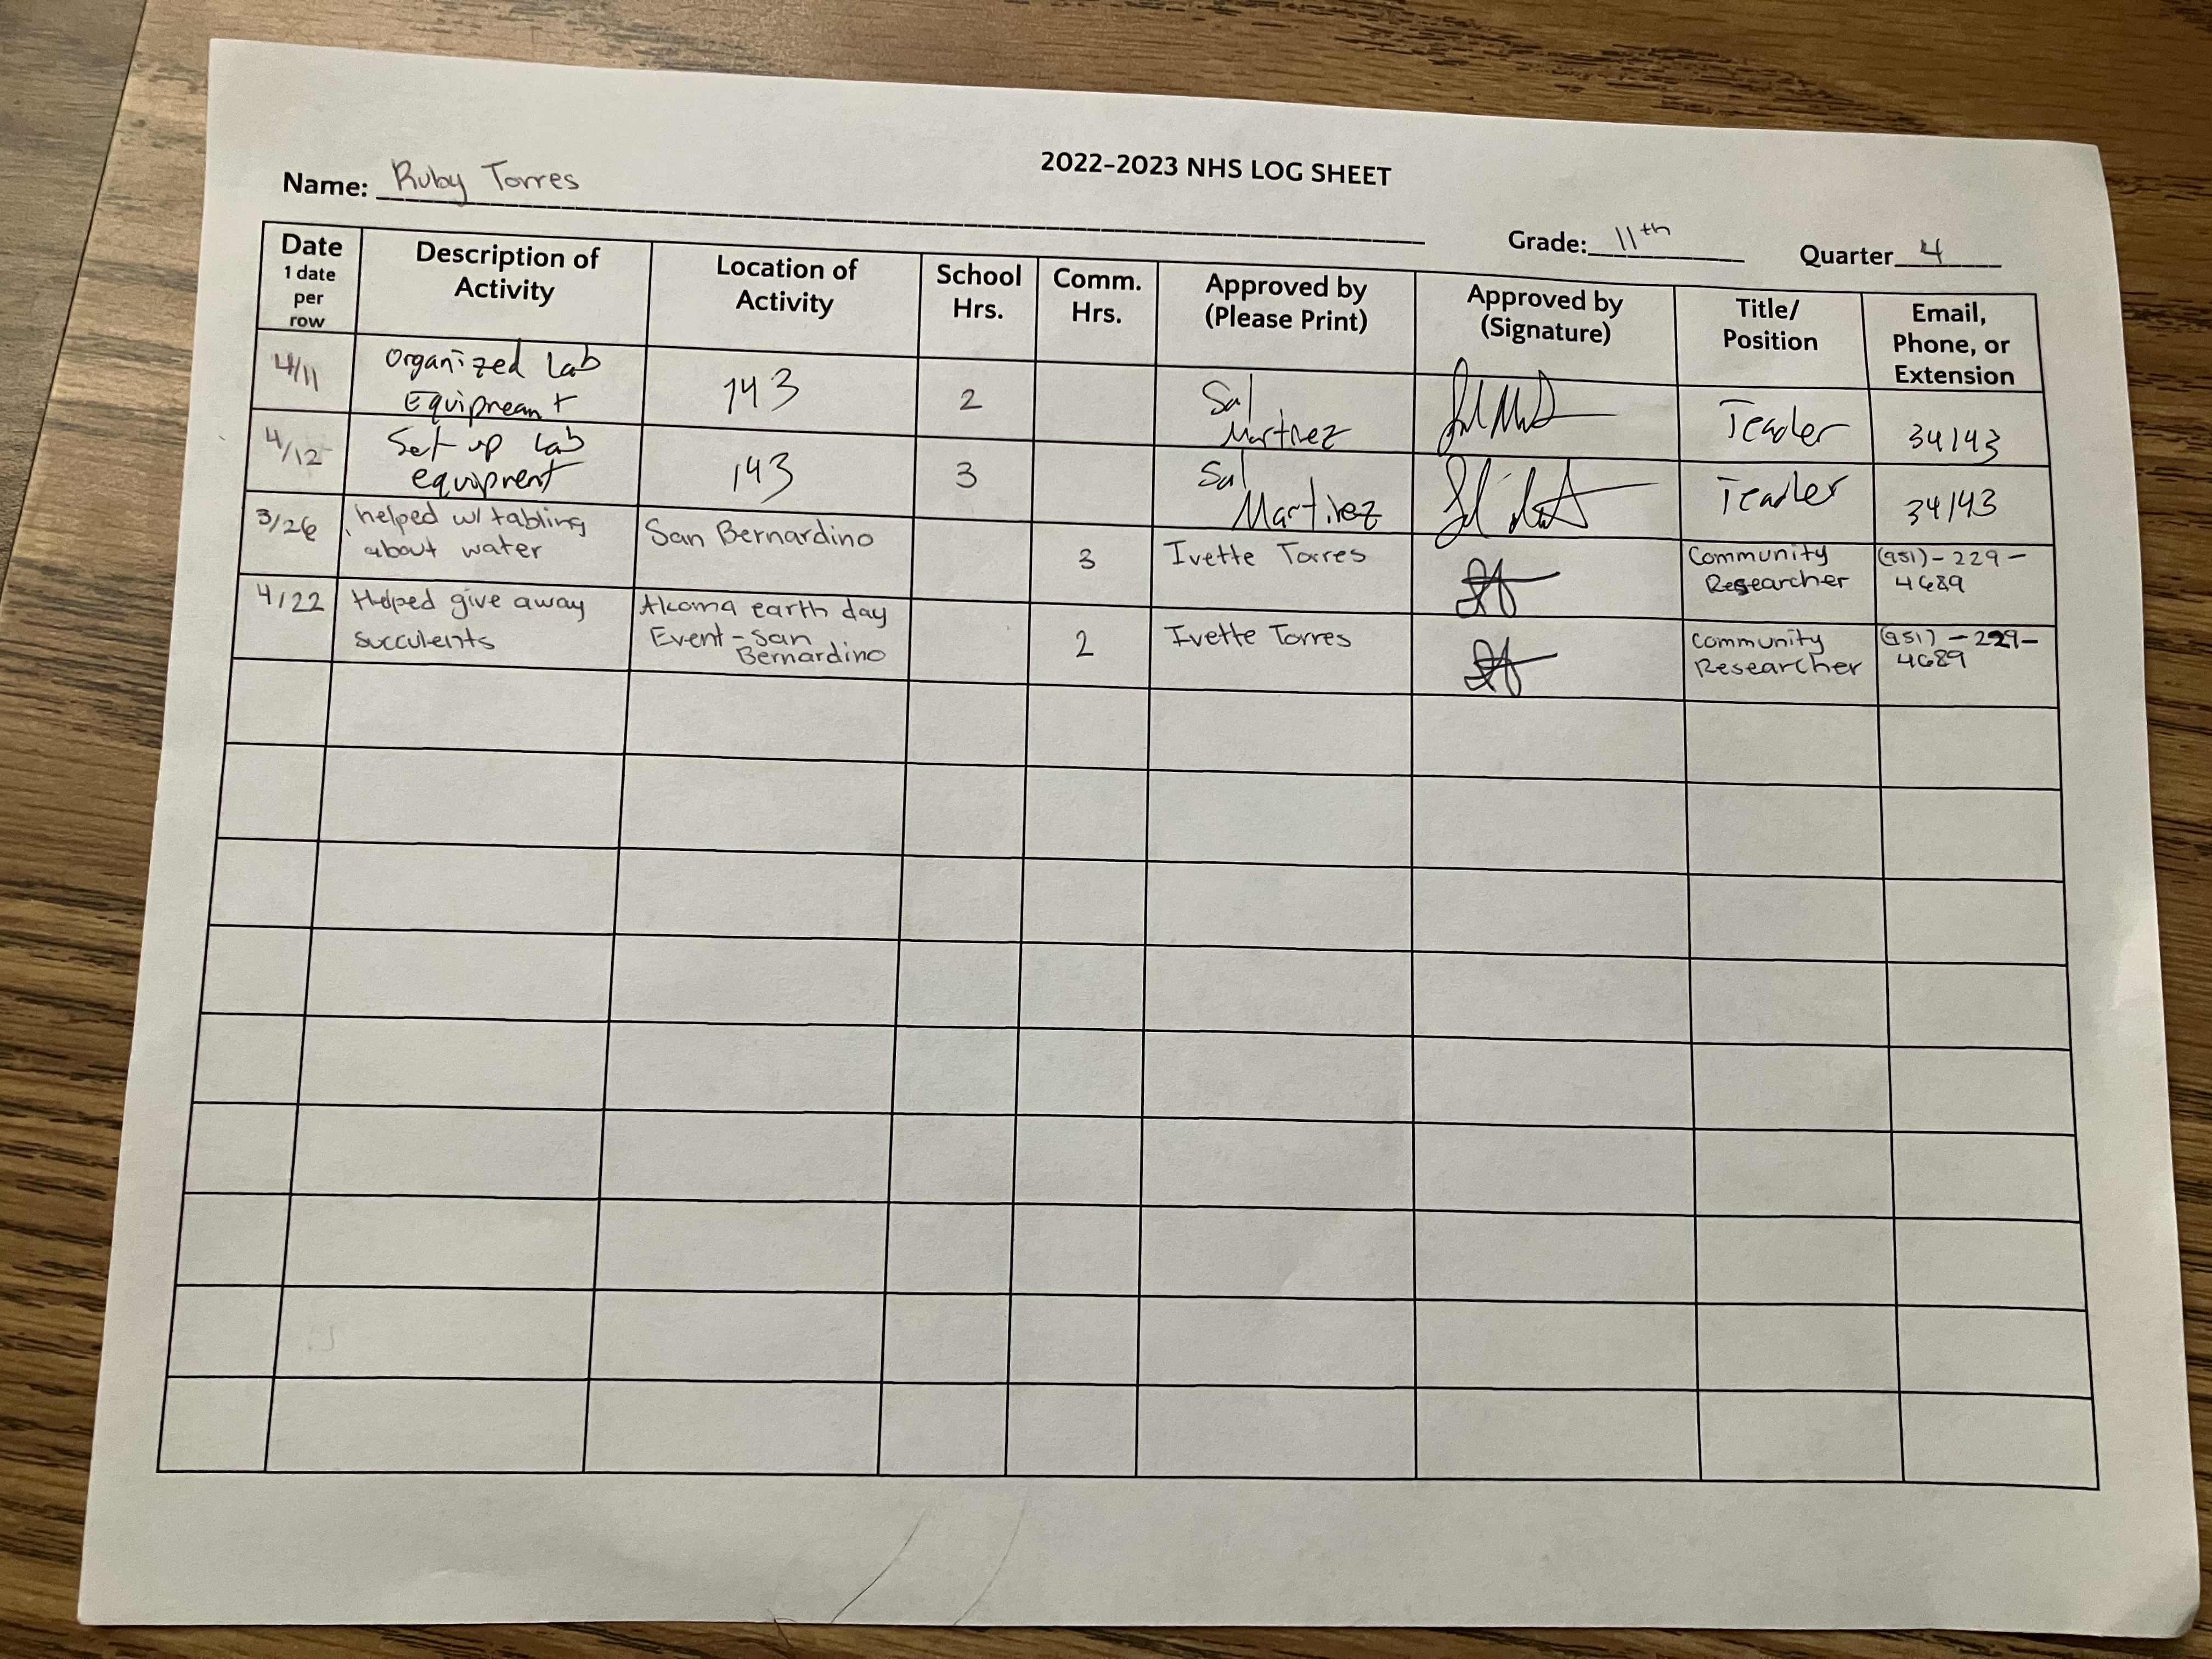 2022-2023 NHS LOG SHEET
Name: Ruby Torres Grade: 11th Quarter 4
Date 1 date per row
Description of Activity
Location of Activity
School Hrs.
Comm. Hrs.
Approved by (Please Print)
Approved by (Signature)
Title/ Position
Email, Phone, or Extension
4/11
Organized Lab
Equipment
143
2
Sal
Martinez
Teacher
34143
4/12
Set up lab
equipment
143
3
Sal
Martinez
Teacher
34143
3/26
helped w/tabling
about water
San Bernardino
3
Ivette Torres
Community
Researcher
(951)-229-
4689
4/22
Helped give away
succulents
Akoma earth day
Event - San
Bernardino
2
Ivette Torres
Community
Researcher
(951)-229-
4689